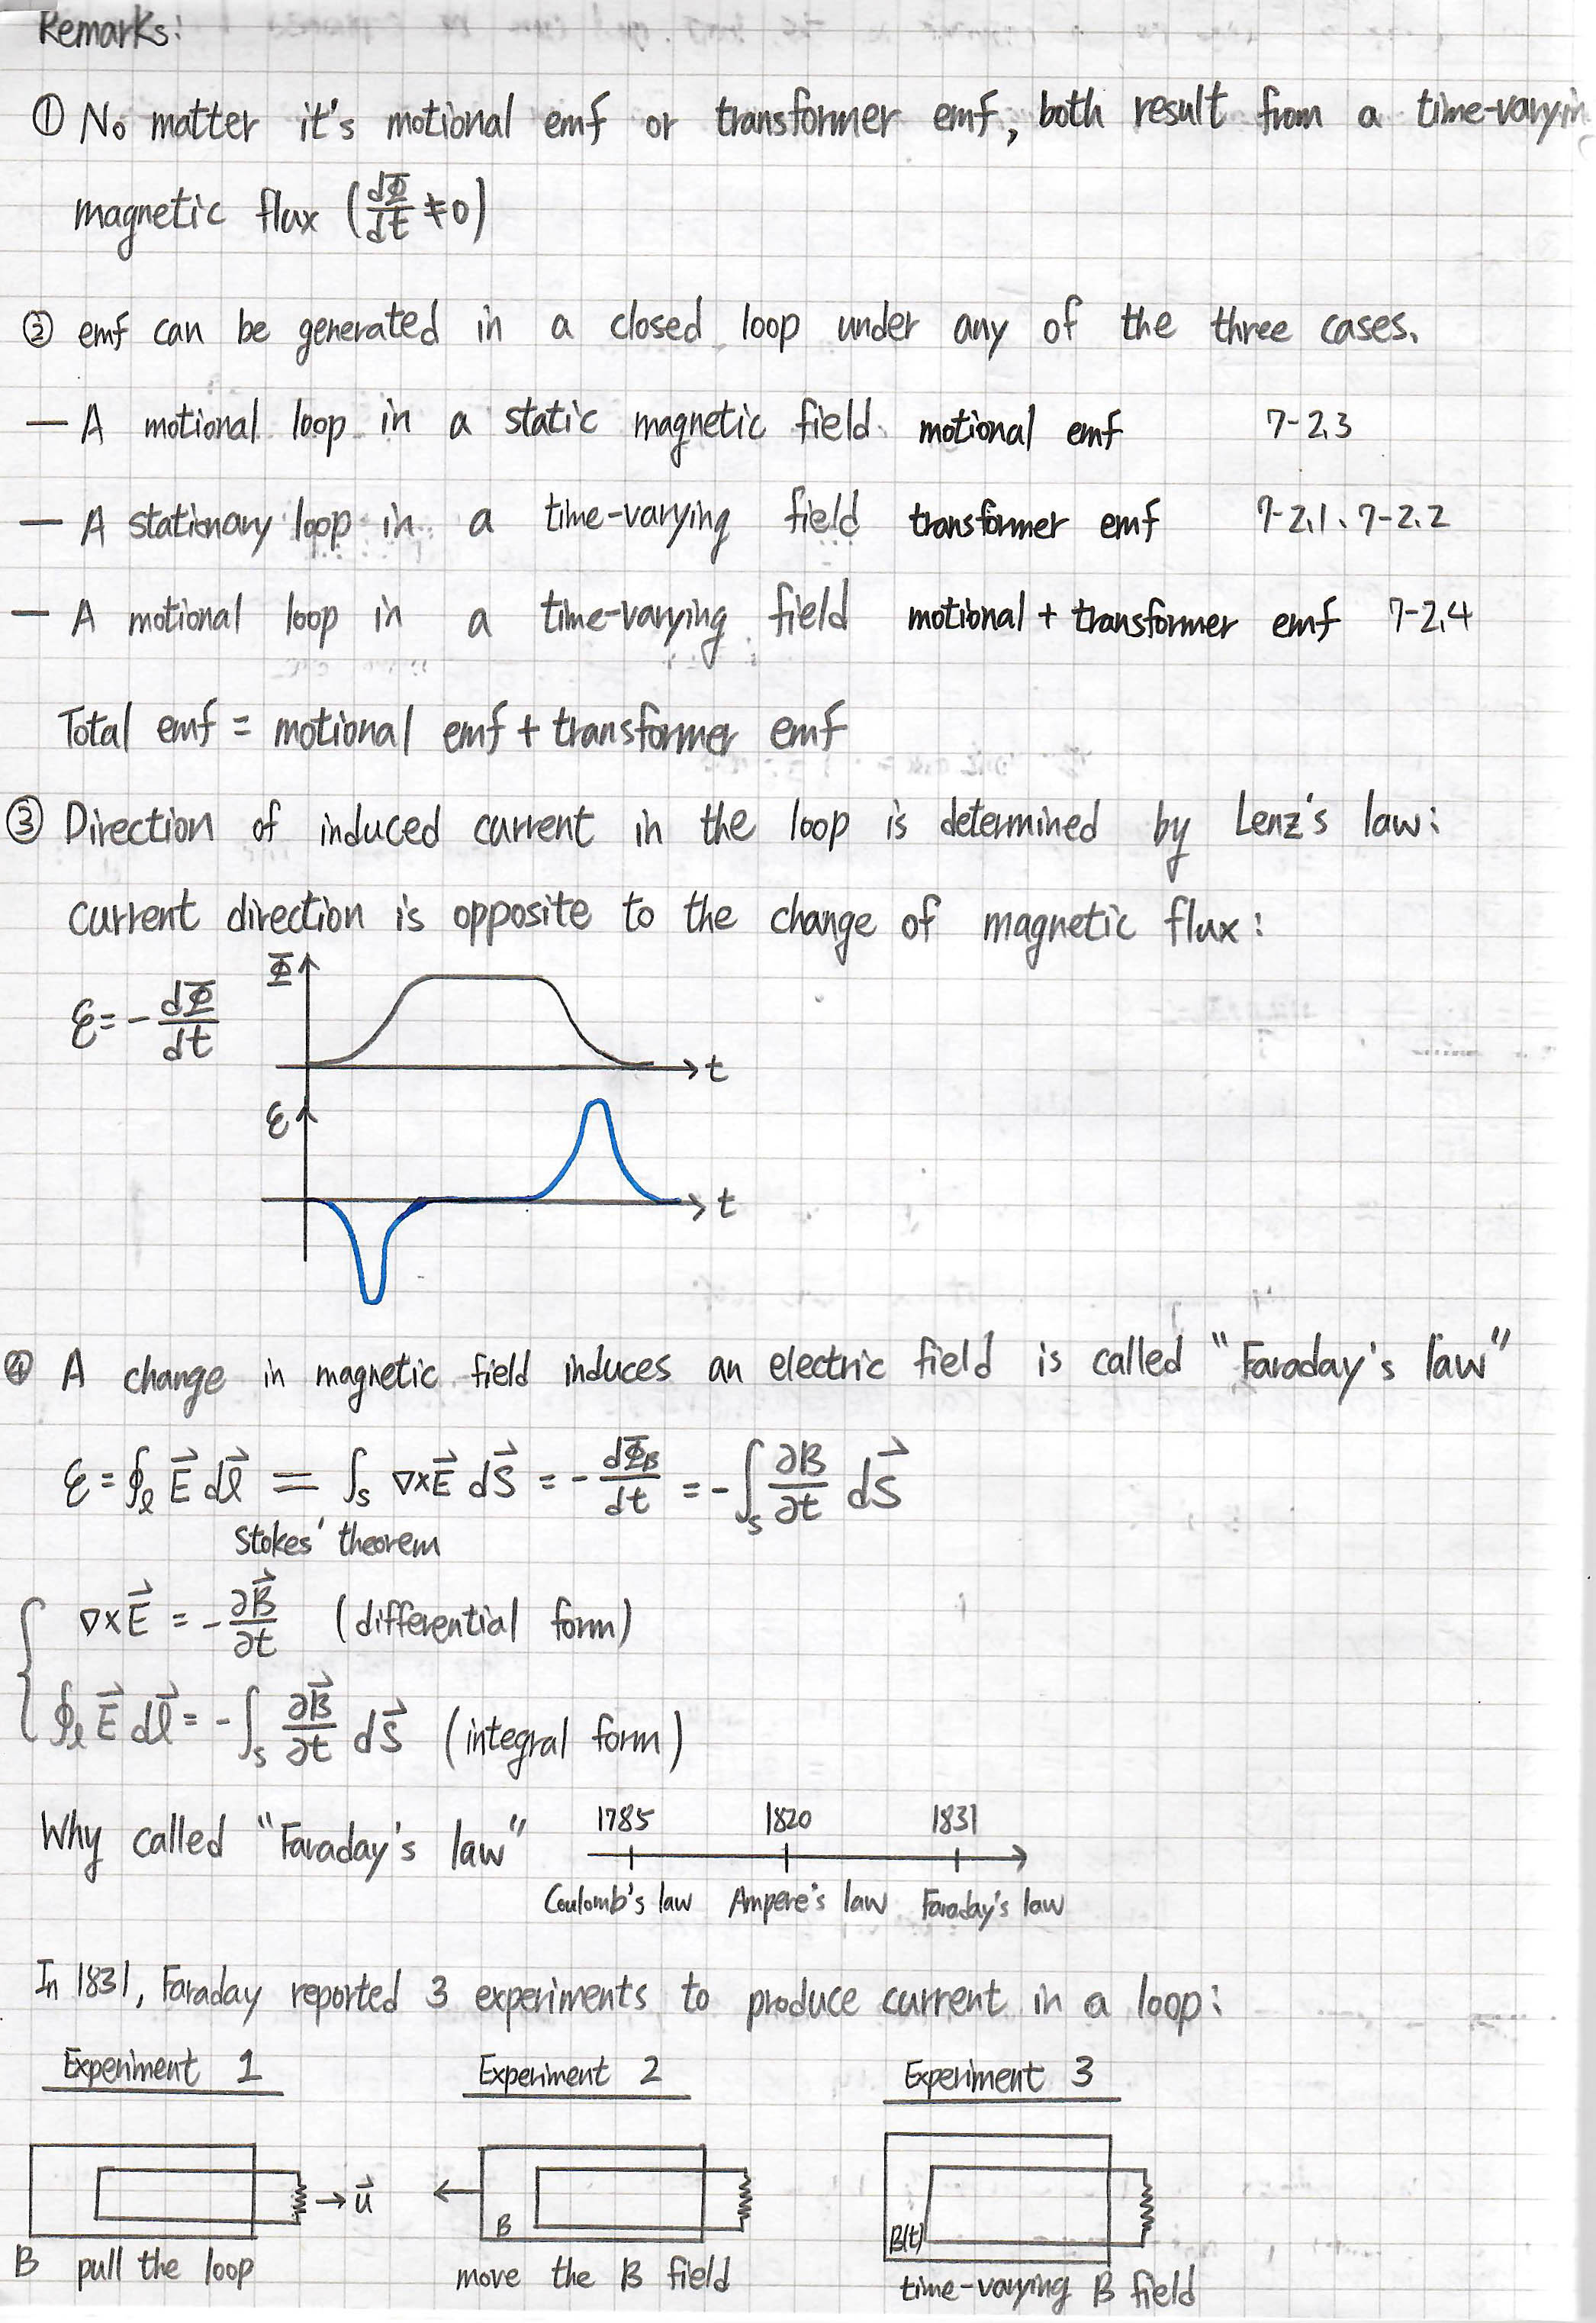 Remarks:
① No matter it's motional emf or transformer emf, both result from a time-varyin
magnetic flux (dΦ/dt ≠ 0)
② emf can be generated in a closed loop under any of the three cases.
— A motional loop in a static magnetic field motional emf 7-2.3
— A stationary loop in a time-varying field transformer emf 7-2.1、7-2.2
— A motional loop in a time-varying field motional + transformer emf 7-2.4
Total emf = motional emf + transformer emf
③ Direction of induced current in the loop is determined by Lenz's law:
current direction is opposite to the change of magnetic flux:
Φ
ℰ = - dΦ/dt
t
ℰ
t
④ A change in magnetic field induces an electric field is called "Faraday's law"
ℰ = ∮ₗ E⃗ dl⃗ = ∫ₛ ∇×E⃗ dS⃗ = - dΦ_B/dt = -∫ₛ ∂B/∂t dS⃗
Stokes' theorem
∇×E⃗ = - ∂B⃗/∂t (differential form)
∮ₗ E⃗ dl⃗ = -∫ₛ ∂B⃗/∂t dS⃗ (integral form)
1785 1820 1831
Why called "Faraday's law"
Coulomb's law Ampere's law Faraday's law
In 1831, Faraday reported 3 experiments to produce current in a loop:
Experiment 1 Experiment 2 Experiment 3
u⃗
B B(t)
B pull the loop move the B field time-varying B field